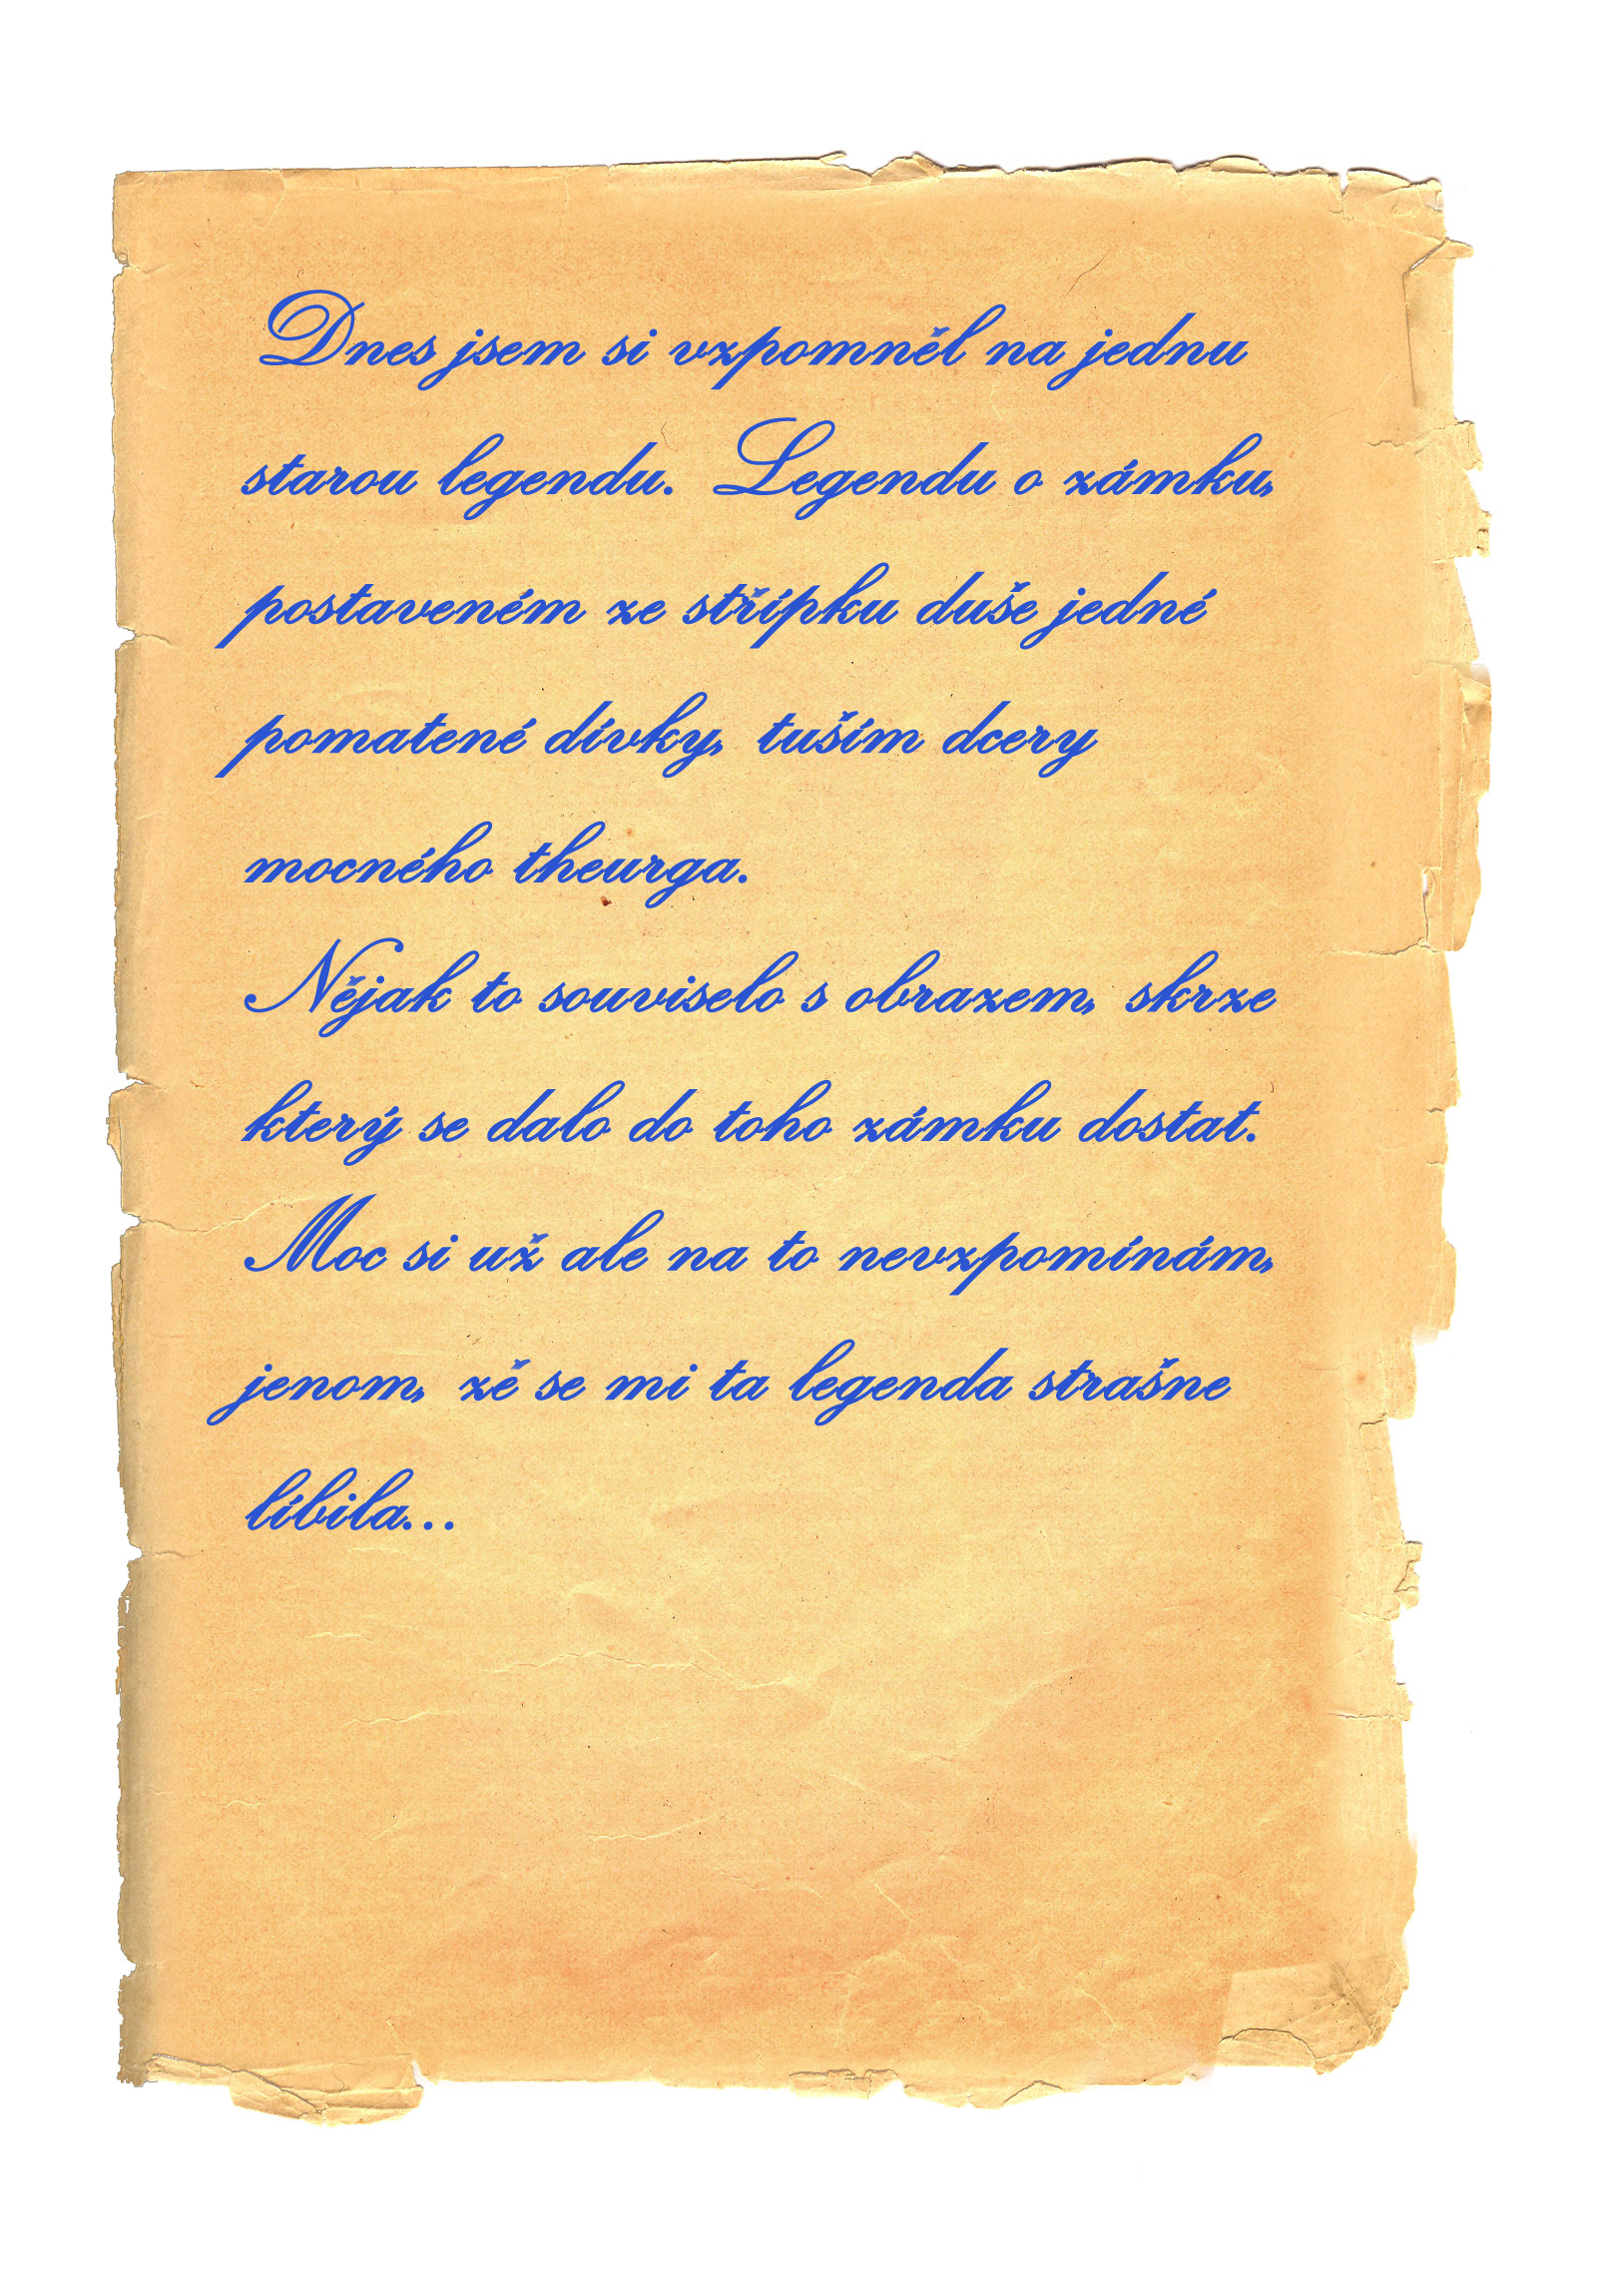 Dnes jsem si vzpomněl na jednu
starou legendu. Legendu o zámku,
postaveném ze střípku duše jedné
pomatené dívky, tuším dcery
mocného theurga.
Nějak to souviselo s obrazem, skrze
který se dalo do toho zámku dostat.
Moc si už ale na to nevzpomínám,
jenom, zě se mi ta legenda strašne
líbila...